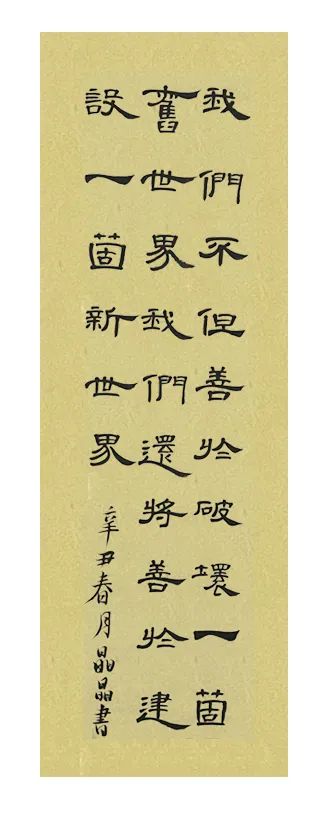 我們不但善於破壞一箇
舊世界我們還將善於建
設一箇新世界
辛丑春月晶晶書